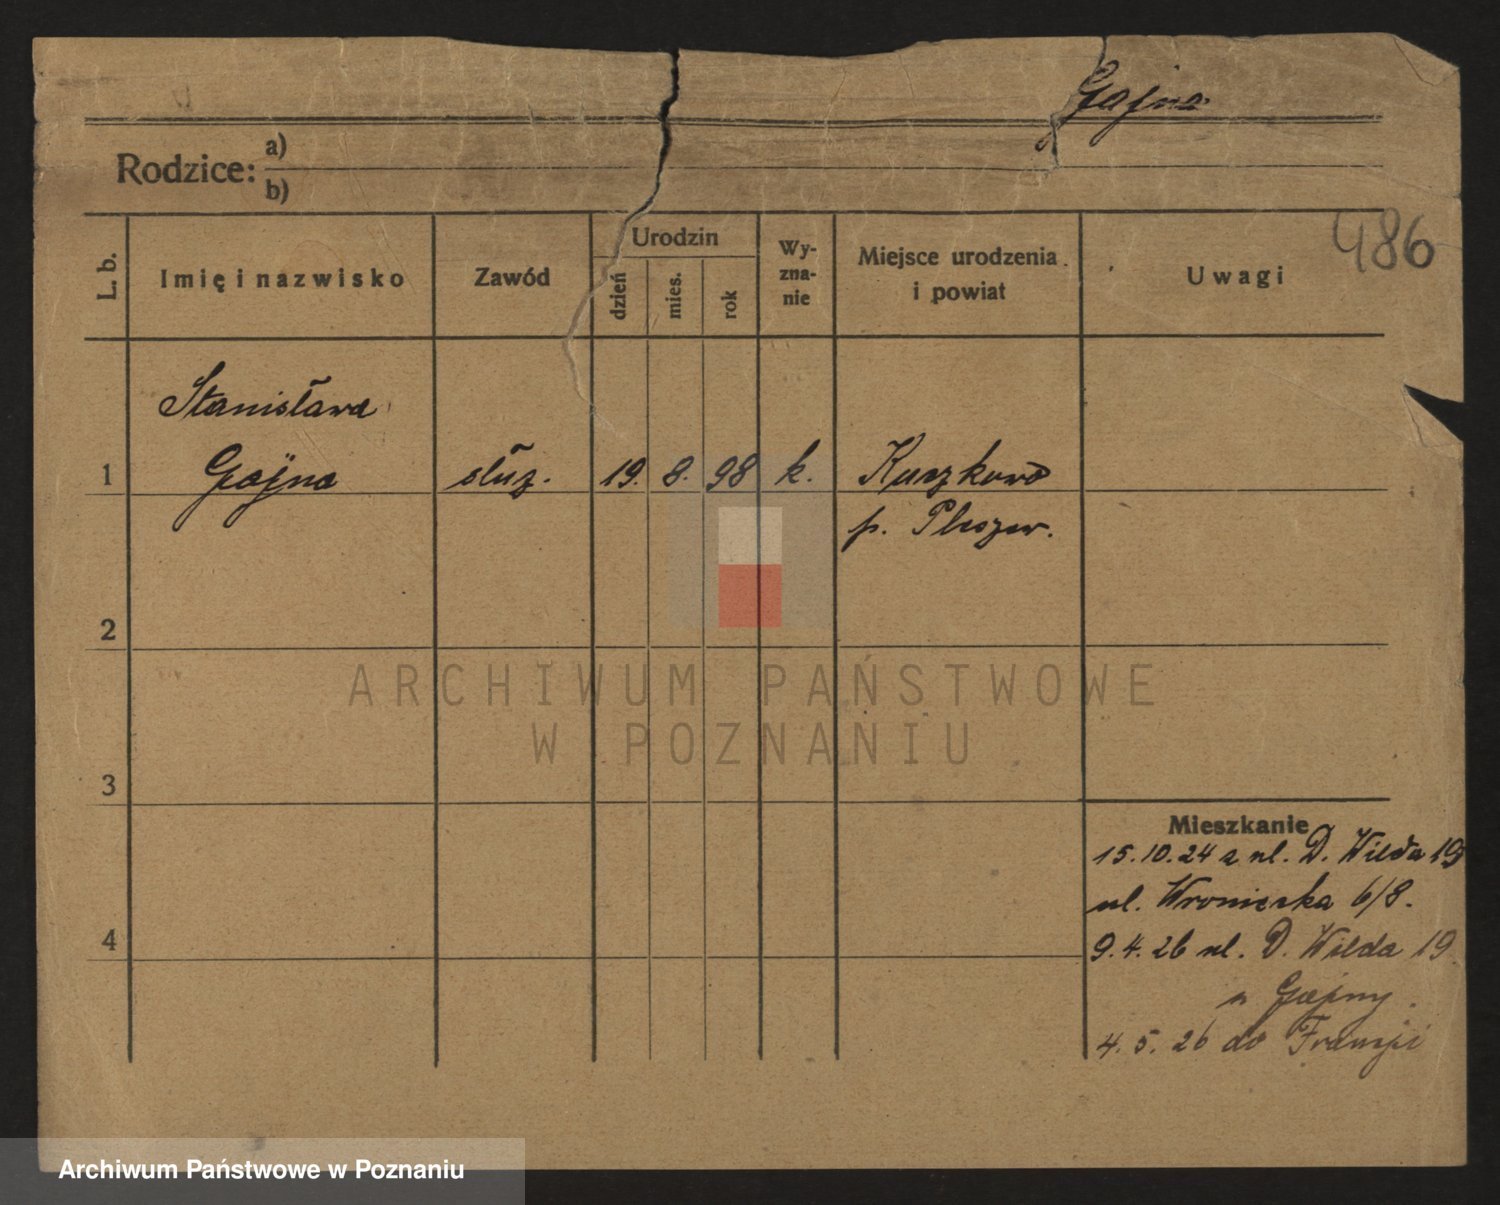 Gajna
Rodzice: a)
b)
486
L. b.
Imię i nazwisko
Zawód
Urodzin
dzień
mies.
rok
Wy-
zna-
nie
Miejsce urodzenia
i powiat
Uwagi
Stanisława
1 Gajna służ. 19. 8. 98 k. Kuczkowo
p. Pleszew.
2
3
4
Mieszkanie
15.10.24 z ul. D. Wilda 19
ul. Wroniecka 6/8.
9.4.26 ul. D. Wilda 19
u Gajny.
4.5.26 do Francji
ARCHIWUM PAŃSTWOWE
W POZNANIU
Archiwum Państwowe w Poznaniu